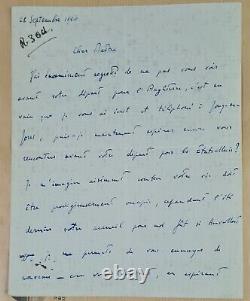 28 Septembre 1960
R. 30d.
Cher Maître
J'ai énormément regretté de ne pas vous voir
avant votre départ pour l'Angleterre, c'est en
vain que je vous ai écrit et téléphoné à
puis-je maintenant espérer vous
rencontrer avant votre départ pour les États-Unis ?
Je m'imagine aisément combien votre vie doit
être prodigieusement occupée, cependant l'été
dernier votre accueil me fût si bienveillant
que je me permets de vous envoyer de
nouveau un en espérant